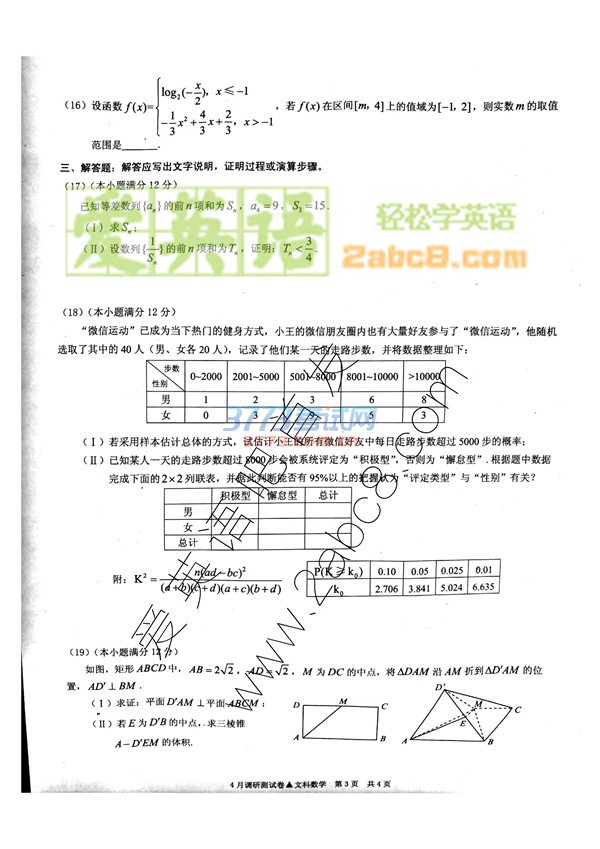 (16) 设函数 f(x)= { log₂(-x/2), x≤-1
-1/3 x²+4/3 x+2/3, x>-1 , 若 f(x) 在区间[m, 4]上的值域为[-1, 2], 则实数 m 的取值
范围是______.
三、解答题: 解答应写出文字说明, 证明过程或演算步骤。
(17) (本小题满分 12 分)
已知等差数列{aₙ}的前 n 项和为 Sₙ, a₄=9, S₃=15.
(Ⅰ) 求 Sₙ;
(Ⅱ) 设数列{1/Sₙ}的前 n 项和为 Tₙ, 证明: Tₙ<3/4.
爱英语
轻松学英语
2abc8.com
(18) (本小题满分 12 分)
“微信运动”已成为当下热门的健身方式, 小王的微信朋友圈内也有大量好友参与了“微信运动”, 他随机
选取了其中的 40 人 (男、女各 20 人), 记录了他们某一天的走路步数, 并将数据整理如下:
步数 性别 0~2000 2001~5000 5001~8000 8001~10000 >10000
男 1 2 3 6 8
女 0 3 9 5 3
3773考试网
(Ⅰ) 若采用样本估计总体的方式, 试估计小王的所有微信好友中每日走路步数超过 5000 步的概率;
(Ⅱ) 已知某人一天的走路步数超过 8000 步会被系统评定为“积极型”, 否则为“懈怠型”. 根据题中数据
完成下面的 2×2 列联表, 并据此判断能否有 95%以上的把握认为“评定类型”与“性别”有关?
积极型 懈怠型 总计
男
女
总计
附: K²= n(ad-bc)²/(a+b)(c+d)(a+c)(b+d)
P(K²≥k₀) 0.10 0.05 0.025 0.01
k₀ 2.706 3.841 5.024 6.635
www.2abc8.com
(19) (本小题满分 12 分)
如图, 矩形 ABCD 中, AB=2√2, AD=√2, M 为 DC 的中点, 将△DAM 沿 AM 折到△D'AM 的位
置, AD'⊥BM.
(Ⅰ) 求证: 平面 D'AM⊥平面 ABCM;
(Ⅱ) 若 E 为 D'B 的中点, 求三棱锥
A-D'EM 的体积.
D M C
A B
D'
M C
E
A B
4月调研测试卷▲文科数学 第3页 共4页